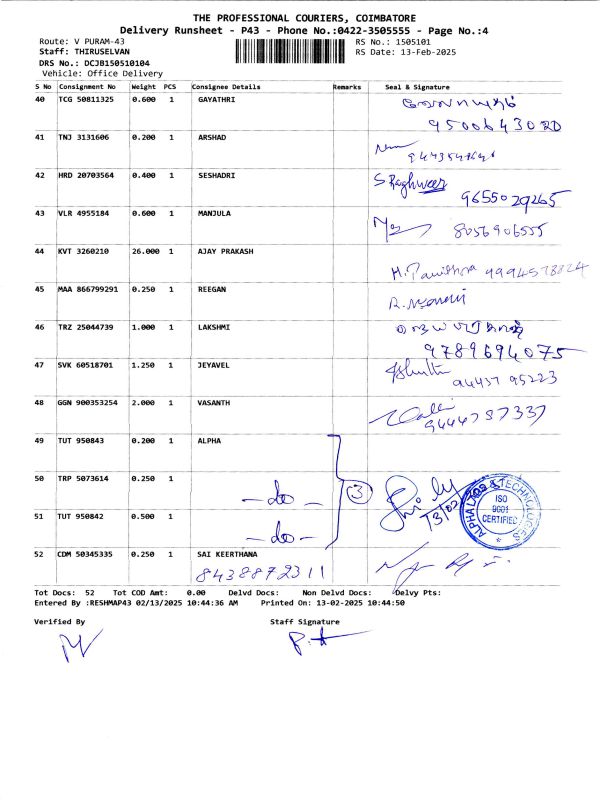 THE PROFESSIONAL COURIERS, COIMBATORE
Delivery Runsheet - P43 - Phone No.:0422-3505555 - Page No.:4
Route: V PURAM-43
RS No.: 1505101
Staff: THIRUSELVAN
RS Date: 13-Feb-2025
DRS No.: DCJB150510104
Vehicle: Office Delivery
S No Consignment No Weight PCS Consignee Details Remarks Seal & Signature
40 TCG 50811325 0.600 1 GAYATHRI
9500643020
41 TNJ 3131606 0.200 1 ARSHAD
42 HRD 20703564 0.400 1 SESHADRI
S Raghuveer 9655029265
43 VLR 4955184 0.600 1 MANJULA
8056906555
44 KVT 3260210 26.000 1 AJAY PRAKASH
H. Pavithra
45 MAA 866799291 0.250 1 REEGAN
46 TRZ 25044739 1.000 1 LAKSHMI
9789694075
47 SVK 60518701 1.250 1 JEYAVEL
94437 95223
48 GGN 900353254 2.000 1 VASANTH
9444787337
49 TUT 950843 0.200 1 ALPHA
50 TRP 5073614 0.250 1
- do - 3
13/02
ISO 9001 CERTIFIED
51 TUT 950842 0.500 1
- do -
52 CDM 50345335 0.250 1 SAI KEERTHANA
8438872311
Tot Docs: 52 Tot COD Amt: 0.00 Delvd Docs: Non Delvd Docs: Delvy Pts:
Entered By :RESHMAP43 02/13/2025 10:44:36 AM Printed On: 13-02-2025 10:44:50
Verified By Staff Signature